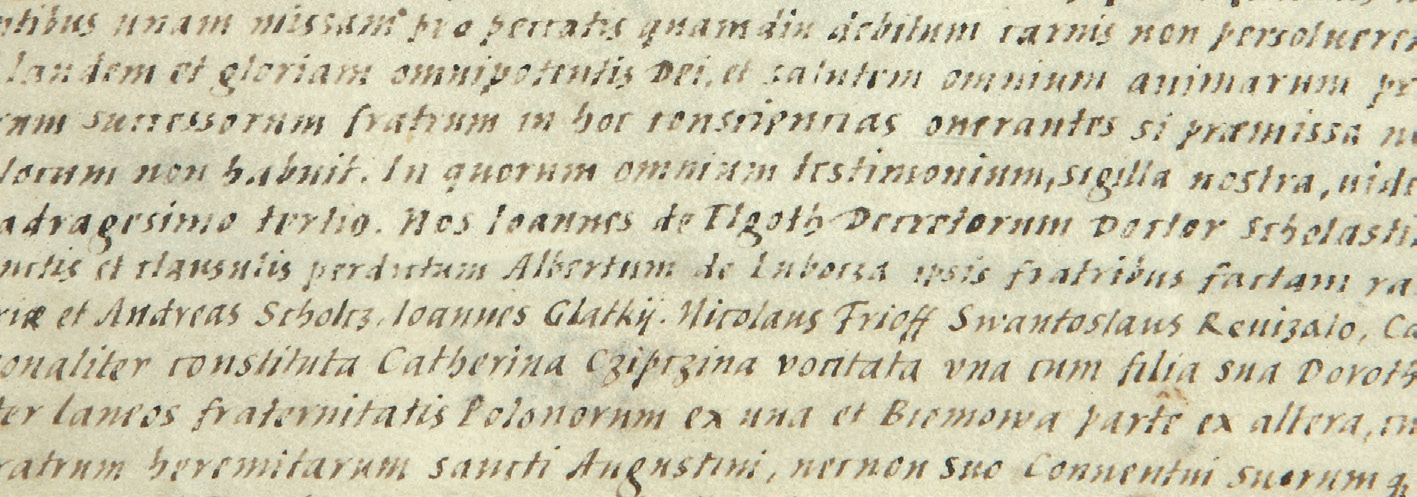 ntibus unam missam pro peccatis quamdiu debitum carnis non persolueren
laudem et gloriam omnipotentis Dei, et salutem omnium animarum pr
rum successorum fratrum in hoc consciencias onerantes si præmissa no
locum non habuit. In quorum omnium testimonium, sigilla nostra, uide
adragesimo tertio. Nos Ioannes de Elgoth Decretorum Doctor Scholasti
nctis et clausulis perdictum Albertum de Luborza ipsis fratribus factam ra
riæ et Andreas Scholcz, Ioannes Glatkij. Nicolaus Frioff Swantoslaus Reuizalo, Ca
onaliter constituta Catherina Czipczina vocitata vna cum filia sua Doroth
ter laneos fraternitatis Polonorum ex una et Biemowa parte ex altera, cu
ratrum heremitarum sancti Augustini, necnon suo Conuentui suorum q